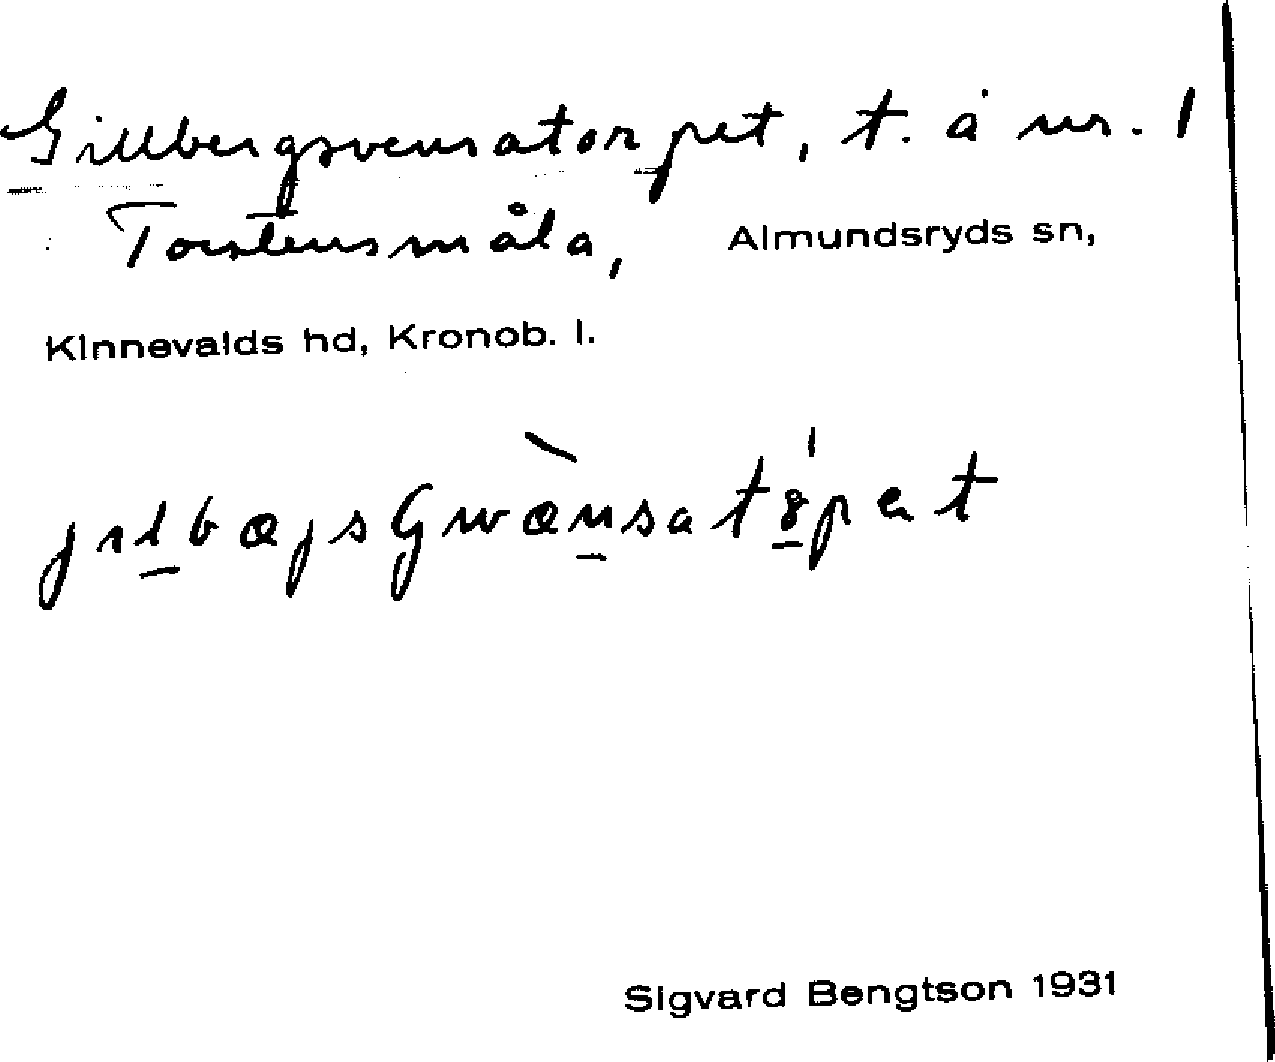 Gillbergsvensatorpet, t. å nr. 1
Torstensmåla, Almundsryds sn,
Kinnevalds hd, Kronob. l.
Sigvard Bengtson 1931